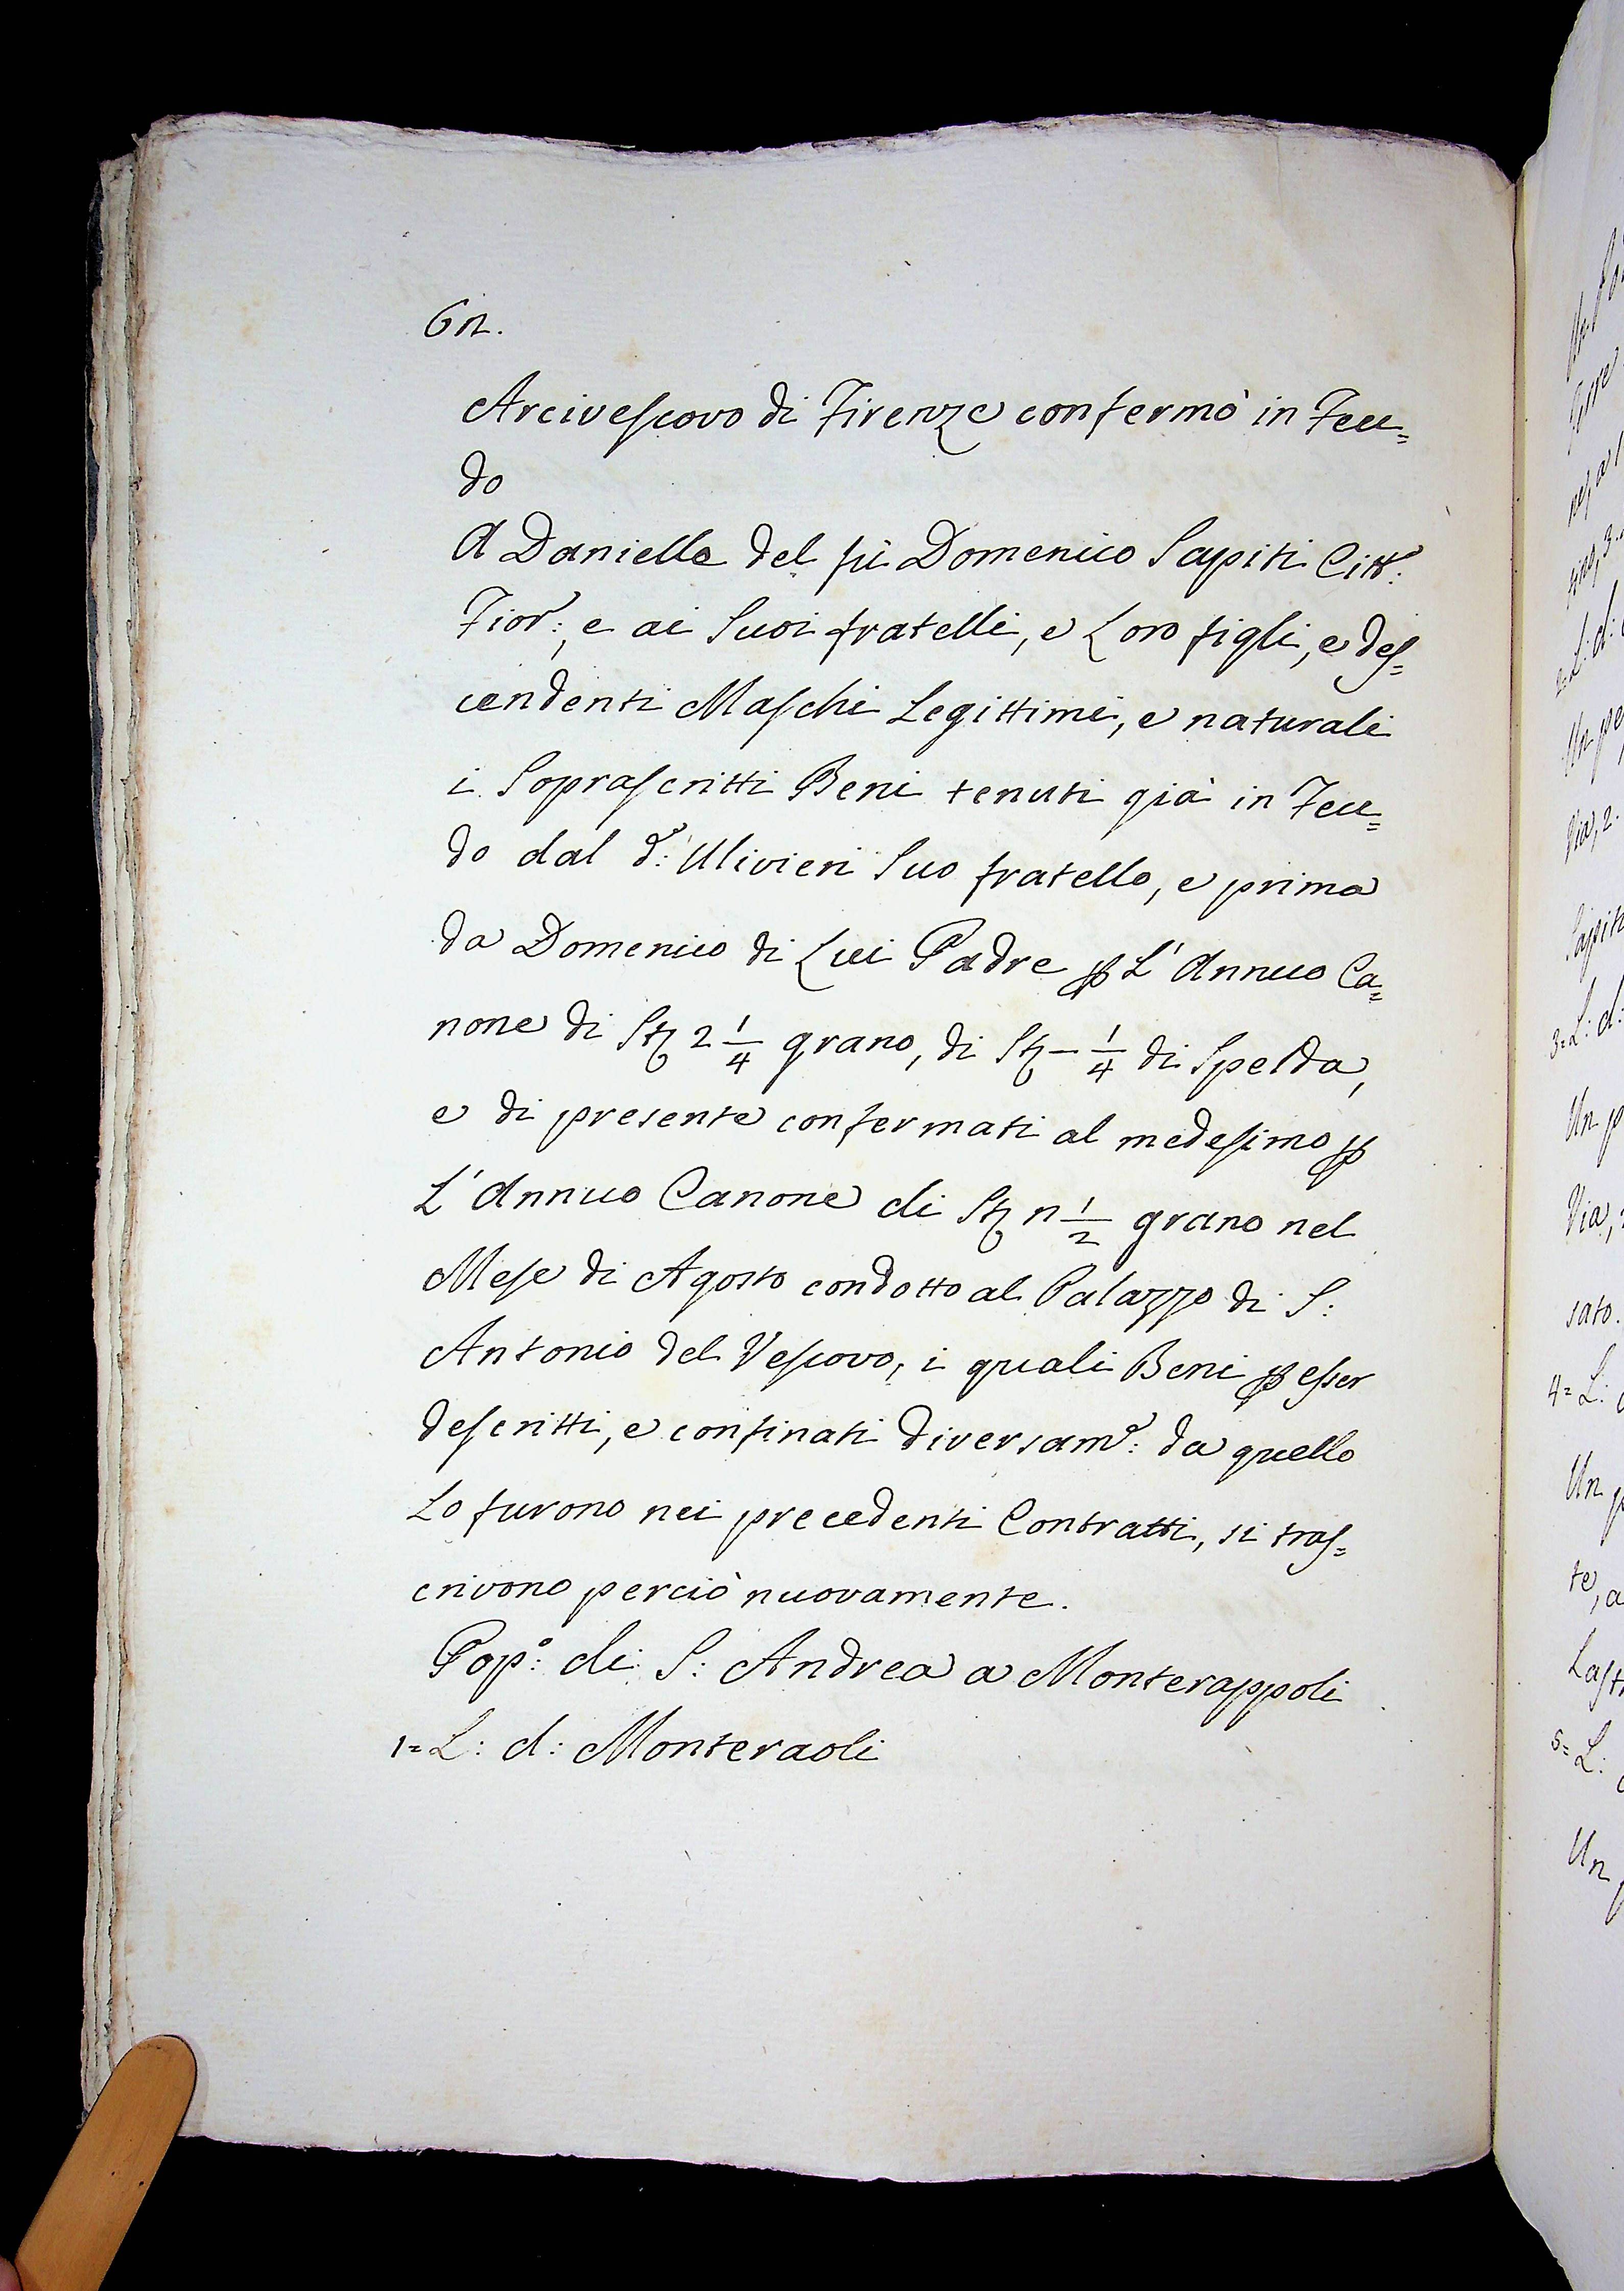 6n.
Arcivescovo di Firenze confermò in Feu=
do
A Daniello del fù Domenico Sapiti Citt:
Fior:, e ai Suoi fratelli, e Loro figli, e des=
cendenti Maschi Legittimi, e naturali
i Soprascritti Beni tenuti già in Feu=
do dal d: Ulivieri Suo fratello, e prima
da Domenico di Lui Padre p L' Annuo Ca=
none di Sta 2 1/4 grano, di Sta - 1/4 di Spelda,
e di presente confermati al medesimo p
L' Annuo Canone di Sta n 1/2 grano nel
Mese di Agosto condotto al Palazzo di S:
Antonio del Vescovo, i quali Beni p esser
descritti, e confinati diversam: da quello
Lo furono nei precedenti Contratti, si tras=
crivono perciò nuovamente.
Pop°: di S: Andrea a Monterappoli
1= L: d: Monteraoli
2= L: d:
Un pe
Via, 2.
Sapiti
3= L: d:
Un p
Via,
sato.
4= L:
Un p
te, a
Lastr
5= L:
Un